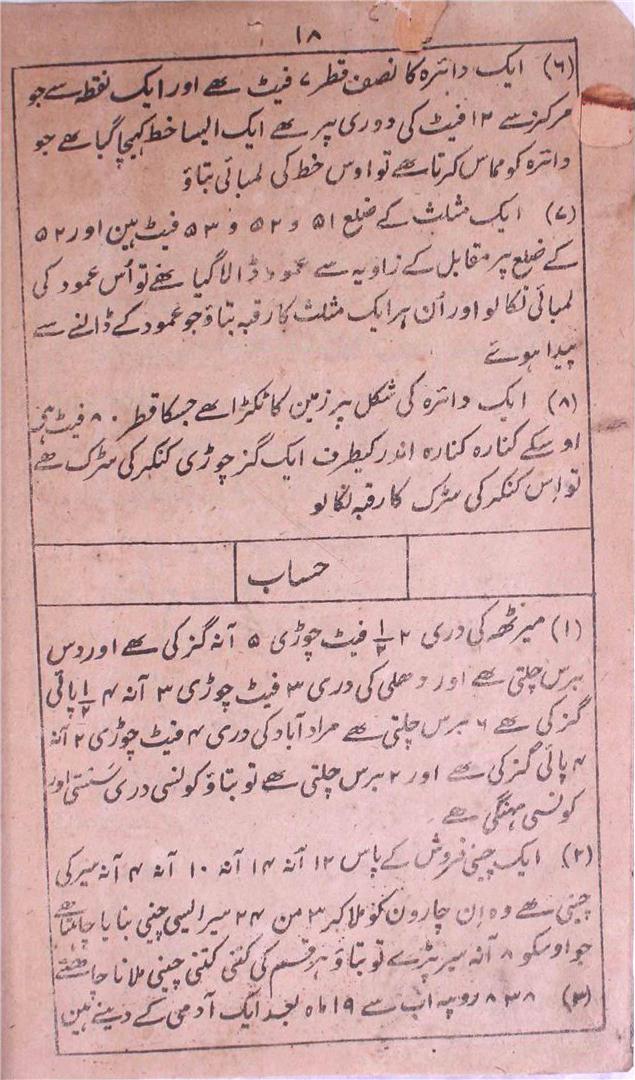 ۱۸
(۶) ایک دائرہ کا نصف قطر ۷ فیٹ ھے اور ایک نقطہ سے جو
مرکز سے ۱۲ فیٹ کی دوری پر ھے ایک ایسا خط کھیچا گیا ھے جو
دائرہ کو مماس کرتا ھے تو اوس خط کی لمبائی بتاؤ
(۷) ایک مثلث کے ضلع ۵۱ و ۵۲ و ۵۳ فیٹ ہین اور ۵۲
کے ضلع پر مقابل کے زاویہ سے عمود ڈالا گیا ھے تو اُس عمود کی
لمبائی نکالو اور اُن ہر ایک مثلث کا رقبہ بتاؤ جو عمود کے ڈالنے سے
پیدا ہوے
(۸) ایک دائرہ کی شکل پر زمین کا ٹکڑا ھے جسکا قطر ۸۰ فیٹ ہی
اوسکے کنارہ کنارہ اندر کیطرف ایک گز چوڑی کنکر کی سڑک ھے
تو اِس کنکر کی سڑک کا رقبہ نکالو
حساب
(۱) میرٹھہ کی دری ۲ ۱/۲ فیٹ چوڑی ۵ آنہ گز کی ھے اور دس
برس چلتی ھے اور دھلی کی دری ۳ فیٹ چوڑی ۳ آنہ ۴ ۱/۲ پائی
گز کی ھے ۶ برس چلتی ھے مراد آباد کی دری ۴ فیٹ چوڑی ۲ آنہ
۴ پائی گز کی ھے اور ۲ برس چلتی ھے تو بتاؤ کونسی دری سَستی اور
کونسی مہنگی ھے
(۲) ایک چینی فروش کے پاس ۱۲ آنہ ۱۴ آنہ ۱۰ آنہ ۴ آنہ سیر کی
چینی ھے وہ اِن چارون کو ملا کر ۳ من ۲۴ سیر ایسی چینی بنایا چاہتا ھے
جو اوسکو ۸ آنہ سیر پڑے تو بتاؤ ہر قسم کی کتنی کتنی چینی ملانا چاہئے
(۳) ۸۳۸ روپیہ اب سے ۱۹ ماہ بعد ایک آدمی کے دینے ہین